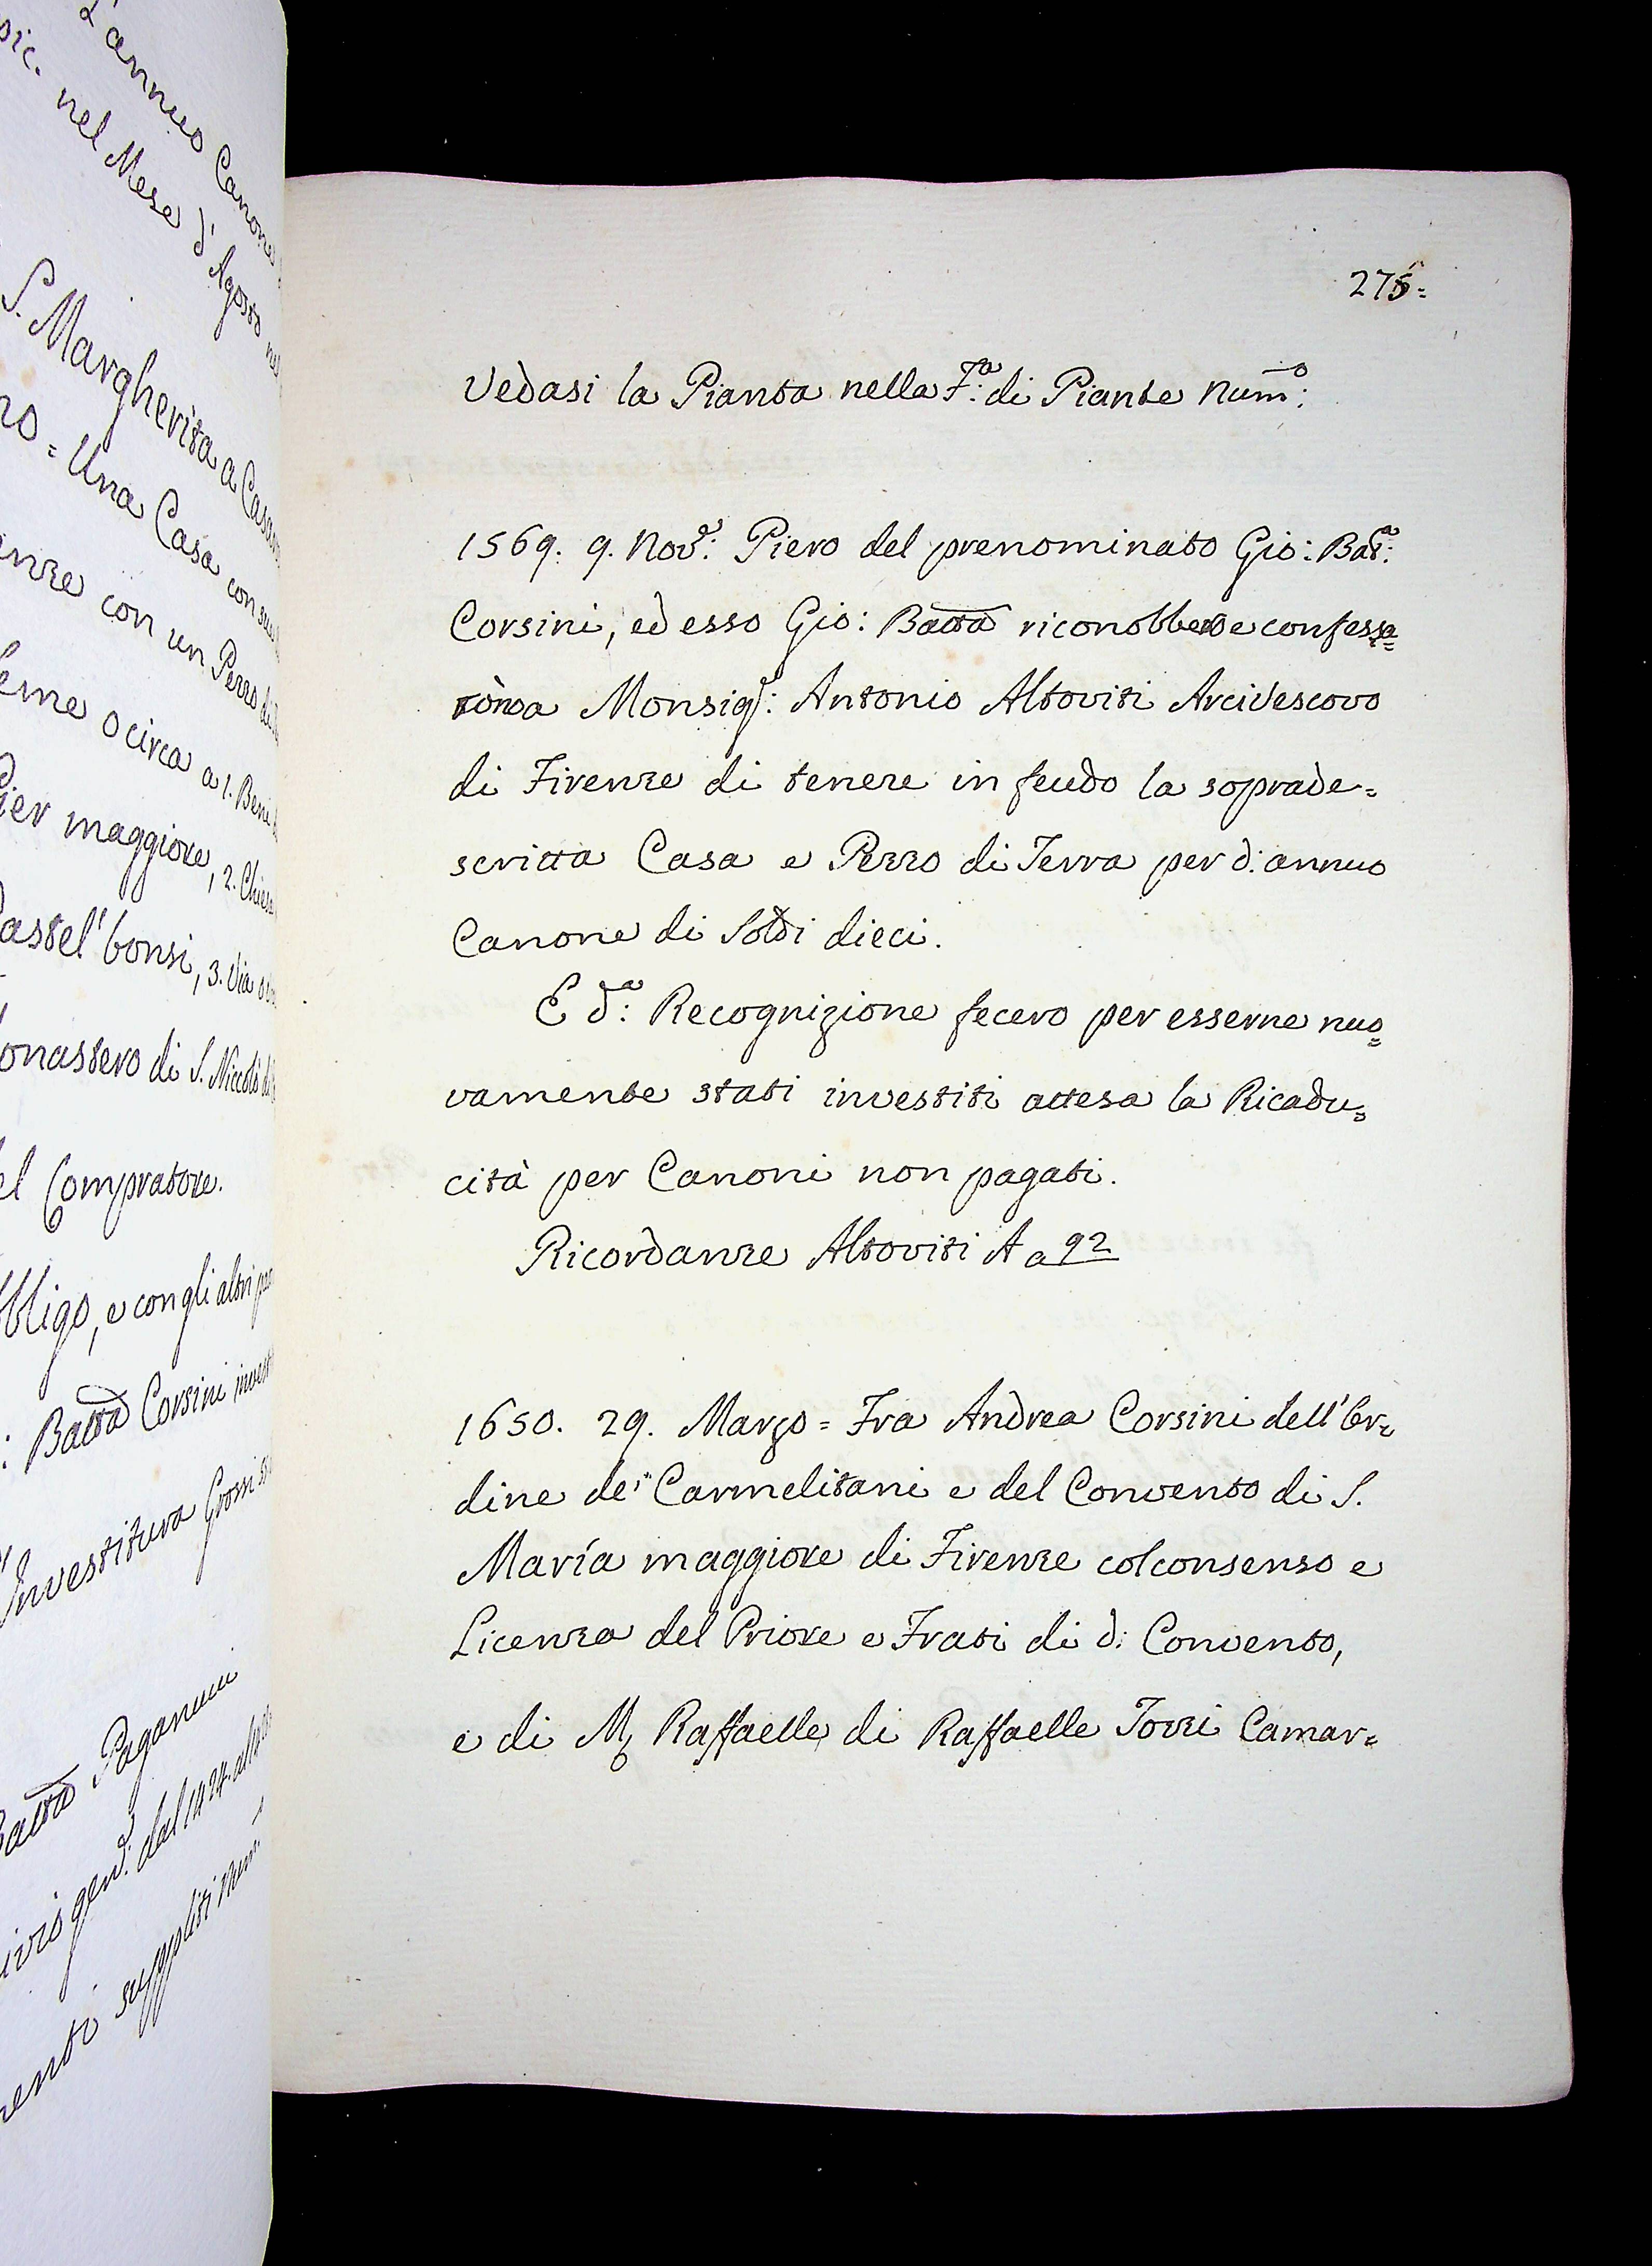 L'annuo Canone
sic. nel Mese d'Agosto nel
S. Margherita a Casa
no = Una Casa con sue
enze con un Pezzo di
seme o circa a 1. Beni
Pier maggiore, 2. Chiesa
Castel'bonsi, 3. Via
onastero di S. Niccolò di
el Compratore.
bbligo, e con gli altri
: Batta Corsini invest
Investitura
Batta Paganucci
ivio gen.
menti suppliti Num.
275=
Vedasi la Pianta nella F.a: di Piante Num.o:
1569. 9. Nov.e: Piero del prenominato Gio: Bat.a:
Corsini, ed esso Gio: Batta riconobbero e confessa=
rono a Monsig.r: Antonio Altoviti Arcivescovo
di Firenze di tenere in feudo la soprade=
scritta Casa e Pezzo di Terra per d: annuo
Canone di Soldi dieci.
E d.a: Recognizione fecero per esserne nuo=
vamente stati investiti attesa la Ricadu=
cità per Canoni non pagati.
Ricordanze Altoviti A a 92
1650. 29. Março = Fra Andrea Corsini dell'Or=
dine de' Carmelitani e del Convento di S.
María maggiore di Firenze col consenso e
Licenza del Priore e Frati di d: Convento,
e di M. Raffaelle di Raffaelle Torri Camar=